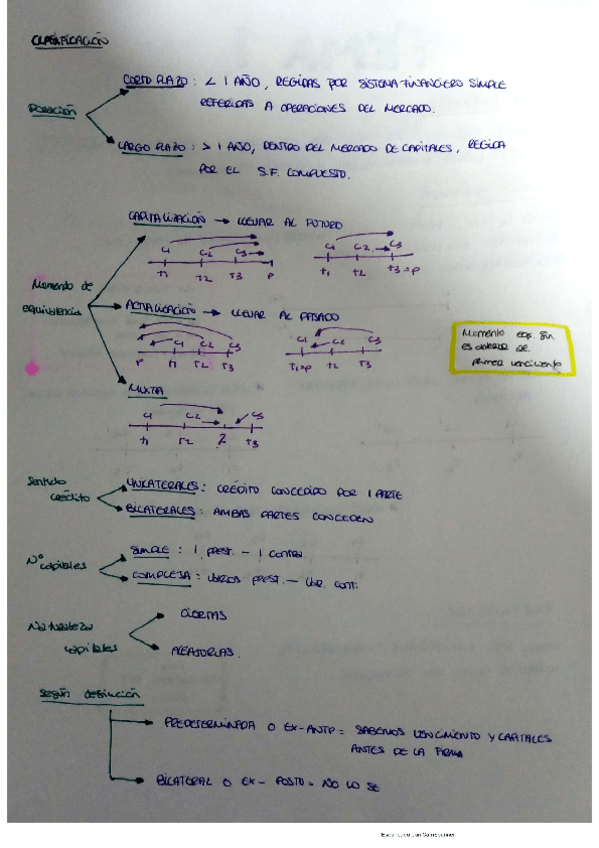 CLASIFICACIÓN
DURACIÓN
CORTO PLAZO : < 1 AÑO, REGIDAS POR SISTEMA FINANCIERO SIMPLE
REFERIDAS A OPERACIONES DEL MERCADO.
LARGO PLAZO : > 1 AÑO, DENTRO DEL MERCADO DE CAPITALES, REGIDA
POR EL S.F. COMPUESTO.
Momento de
equivalencia
CAPITALIZACIÓN → LLEVAR AL FUTURO
C1 C2 C3
T1 T2 T3 P
C1 C2 C3
T1 T2 T3=P
ACTUALIZACIÓN → LLEVAR AL PASADO
C1 C2 C3
P T1 T2 T3
C1 C2 C3
T1=P T2 T3
Momento eq. fin
es anterior al
primer vencimiento
MIXTA
C1 C2 C3
T1 T2 T3
Sentido
crédito
UNILATERALES : CRÉDITO CONCEDIDO POR 1 PARTE
BILATERALES : AMBAS PARTES CONCEDEN
Nº capitales
SIMPLE : 1 PREST. - 1 CONTRA
COMPLEJA : VARIOS PREST. - VAR. CONT.
Naturaleza
capitales
CIERTAS
ALEATORIAS.
Según definición
PREDETERMINADA O EX-ANTE = SABEMOS VENCIMIENTO Y CAPITALES
ANTES DE LA FIRMA
BILATERAL O EX-POSTO = NO LO SE
Escaneado con CamScanner